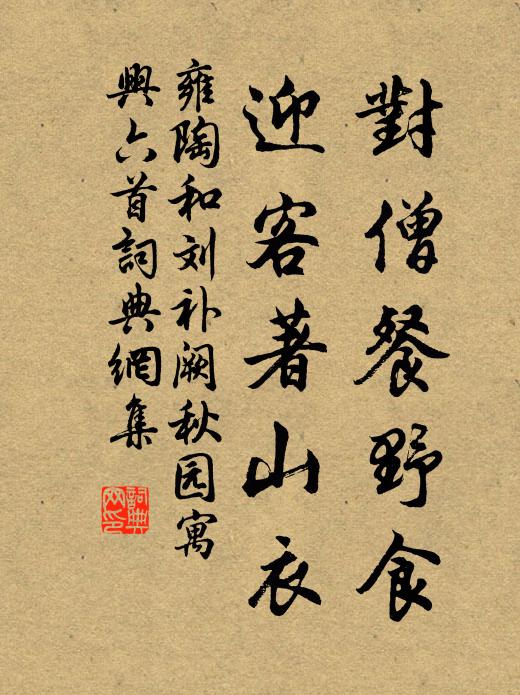 對僧餐野食
迎客著山衣
雍陶和刘补阙秋园寓
興六首詞典網集
詞典
网印